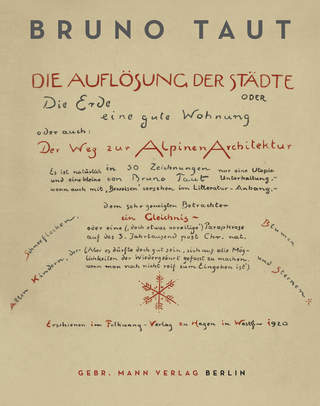 BRUNO TAUT
DIE AUFLÖSUNG DER STÄDTE
ODER
Die Erde
eine gute Wohnung
oder auch:
Der Weg zur Alpinen Architektur
Es ist natürlich in 30 Zeichnungen nur eine Utopie
und eine kleine von Bruno Taut Unterhaltung,-
wenn auch mit „Beweisen" versehen im Litteratur-Anhang,-
dem sehr geneigten Betrachter
ein Gleichnis –
oder eine (, doch etwas voreilige) Paraphrase
auf das 3. Jahrtausend post Chr. nat.
(Aber es dürfte doch gut sein, sich auf alle Mög-
lichkeiten der Wiedergeburt gefasst zu machen,
wenn man noch nicht reif zum Eingehen ist)
Allen Kindern, den Schneeflocken,
Blumen und Sternen
Erschienen im Folkwang-Verlag zu Hagen in Westf. 1920
GEBR. MANN VERLAG BERLIN